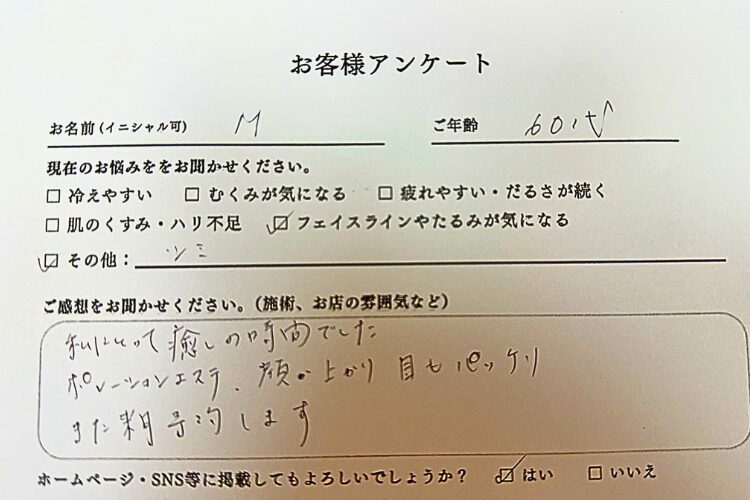 お客様アンケート
お名前(イニシャル可) M ご年齢 60代
現在のお悩みををお聞かせください。
□ 冷えやすい □ むくみが気になる □ 疲れやすい・だるさが続く
□ 肌のくすみ・ハリ不足 ☑ フェイスラインやたるみが気になる
☑ その他: シミ
ご感想をお聞かせください。(施術、お店の雰囲気など)
私にとって癒しの時間でした
ポレーションエステ、顔が上がり 目もパッチリ
また来月予約します
ホームページ・SNS等に掲載してもよろしいでしょうか? ☑ はい □ いいえ